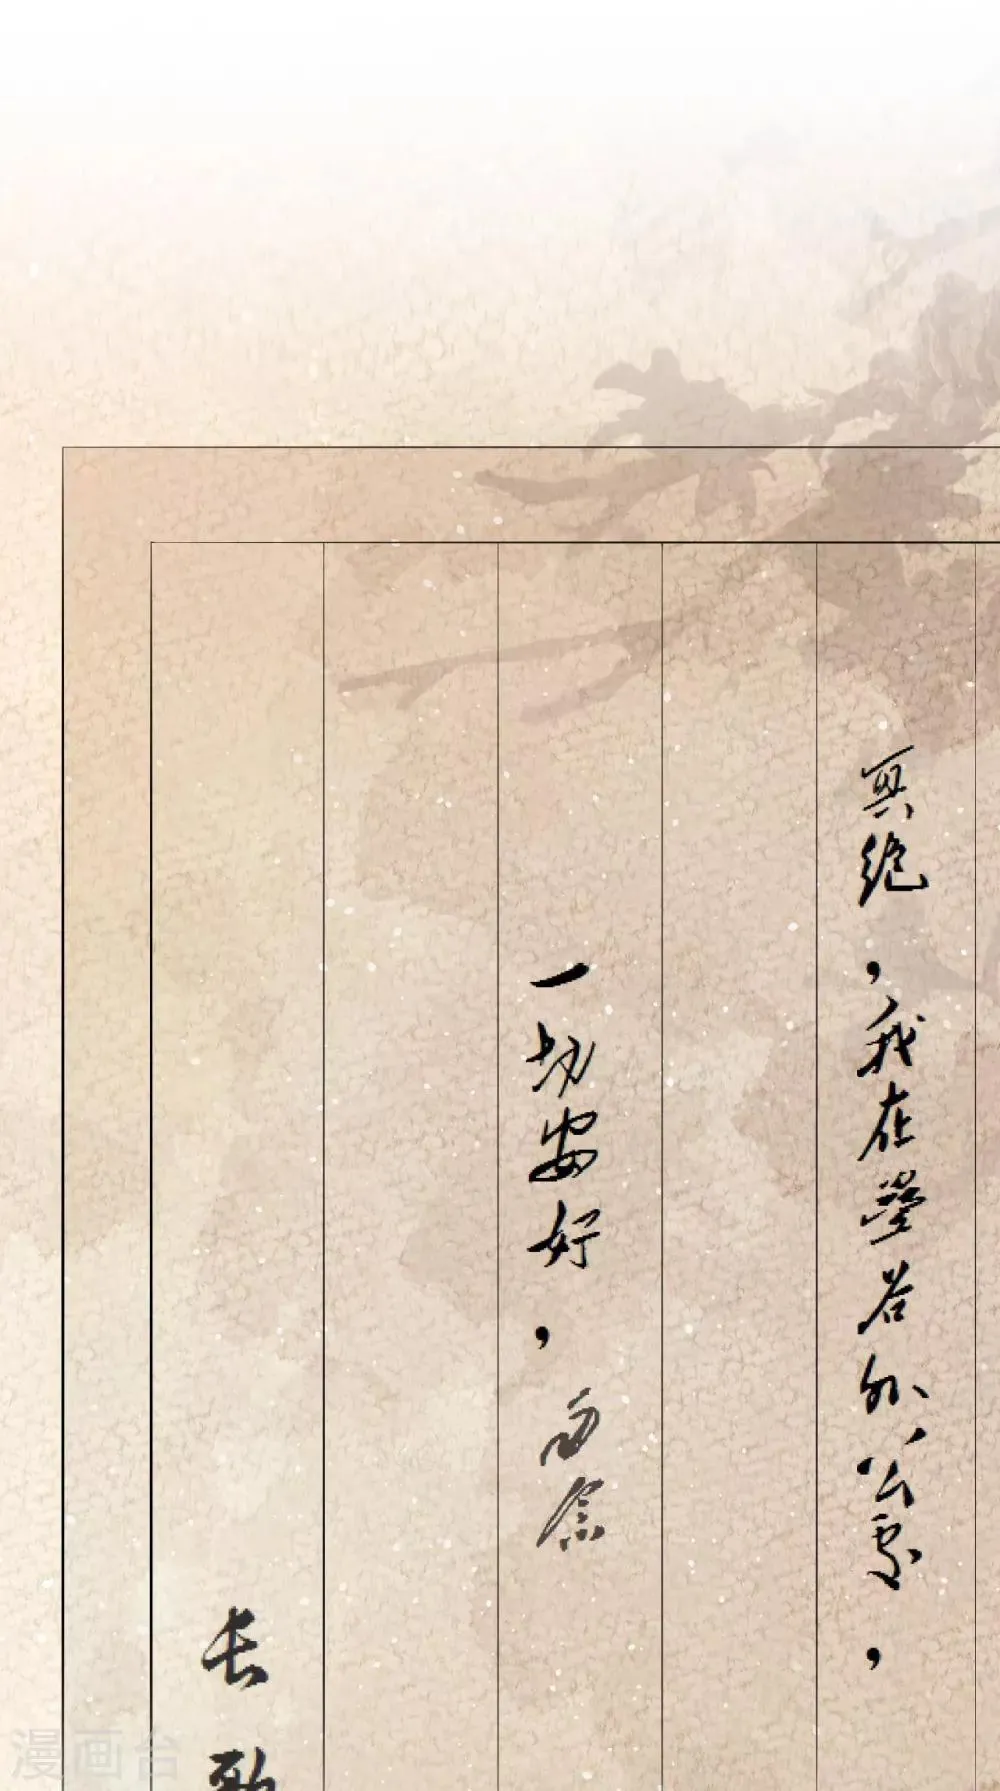 冥绝，我在谷外公家，
一切安好，勿念
长歌
漫画台